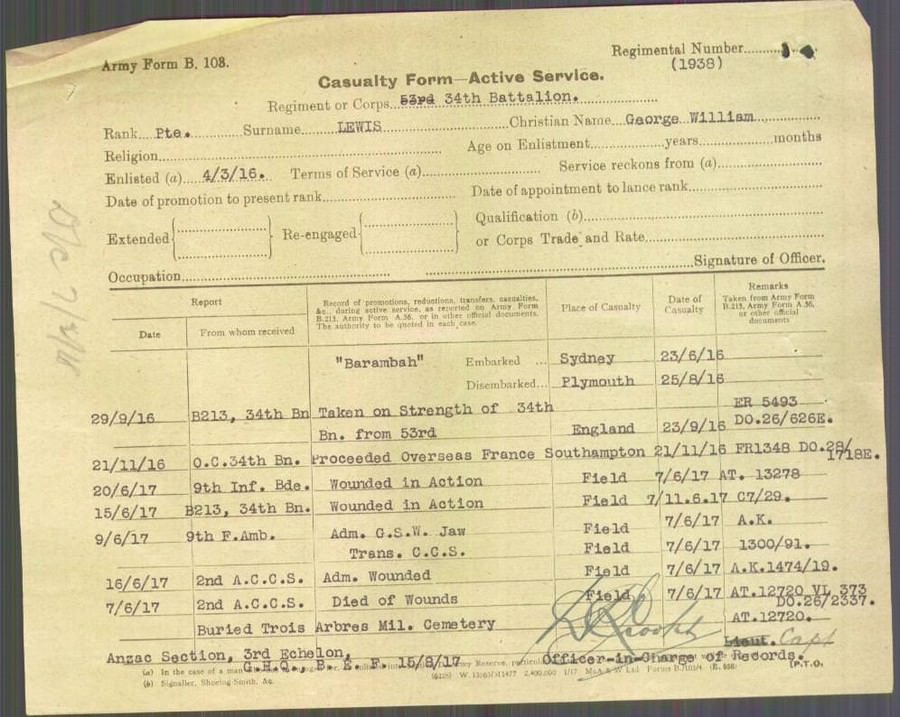 Army Form B. 103.
Regimental Number
(1938)
Casualty Form—Active Service.
Regiment or Corps 53rd 34th Battalion.
Rank Pte. Surname LEWIS Christian Name George William
Religion Age on Enlistment years months
Enlisted (a) 4/3/16. Terms of Service (a) Service reckons from (a)
Date of promotion to present rank Date of appointment to lance rank
Extended Re-engaged Qualification (b)
or Corps Trade and Rate
Occupation Signature of Officer.
Report
Date From whom received
Record of promotions, reductions, transfers, casualties,
&c., during active service, as reported on Army Form
B.213, Army Form A.36, or in other official documents.
The authority to be quoted in each case.
Place of Casualty
Date of
Casualty
Remarks
Taken from Army Form
B.213, Army Form A.36,
or other official
documents
"Barambah" Embarked ... Sydney 23/6/16
Disembarked... Plymouth 25/8/16
29/9/16 B213, 34th Bn Taken on Strength of 34th ER 5493
Bn. from 53rd England 23/9/16 DO.26/626E.
21/11/16 O.C.34th Bn. Proceeded Overseas France Southampton 21/11/16 FR1348 DO.28/
1718E.
20/6/17 9th Inf. Bde. Wounded in Action Field 7/6/17 AT. 13278
15/6/17 B213, 34th Bn. Wounded in Action Field 7/11.6.17 C7/29.
9/6/17 9th F.Amb. Adm. G.S.W. Jaw Field 7/6/17 A.K.
Trans. C.C.S. Field 7/6/17 1300/91.
16/6/17 2nd A.C.C.S. Adm. Wounded Field 7/6/17 A.K.1474/19.
7/6/17 2nd A.C.C.S. Died of Wounds Field 7/6/17 AT.12720 VL 373
DO.26/2337.
Buried Trois Arbres Mil. Cemetery AT.12720.
Lieut. Capt
Anzac Section, 3rd Echelon, Officer-in-Charge of Records.
G.H.Q., B. E. F. 15/8/17
(a) In the case of a man Army Reserve, P.T.O.
(b) Signaller, Shoeing-Smith, &c.